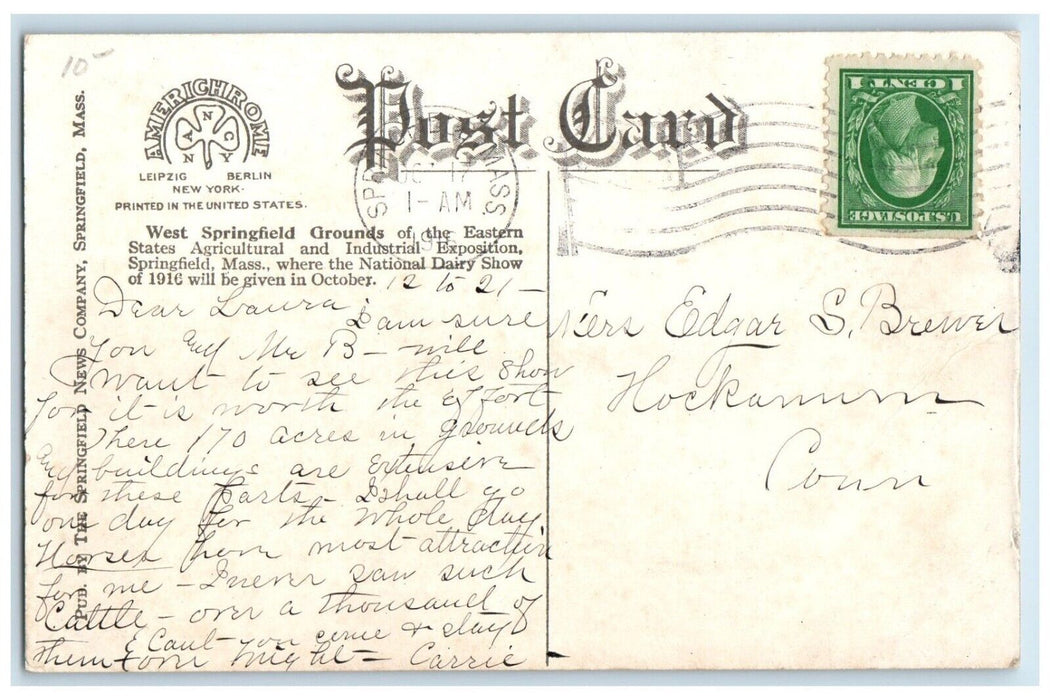 10-
Post Card
AMERICHROME
A N C
N Y
LEIPZIG BERLIN
NEW YORK.
PRINTED IN THE UNITED STATES.
West Springfield Grounds of the Eastern
States Agricultural and Industrial Exposition,
Springfield, Mass., where the National Dairy Show
of 1916 will be given in October. 12 to 21-
Dear Laura;
I am sure
you and Mr B- will
want to see this show
for it is worth the effort
There 170 acres in grounds
and buildings are extensive
for these parts- I shall go
one day for the whole day
Horses have most attraction
for me - I never saw such
Cattle - over a thousand of
them & Cant you come & stay
over night - Carrie
PUB. BY THE SPRINGFIELD NEWS COMPANY, SPRINGFIELD, MASS.
MASS.
12
1-AM
1 CENT 1
U.S. POSTAGE
Mrs Edgar S. Brewer
Hockanum
Conn